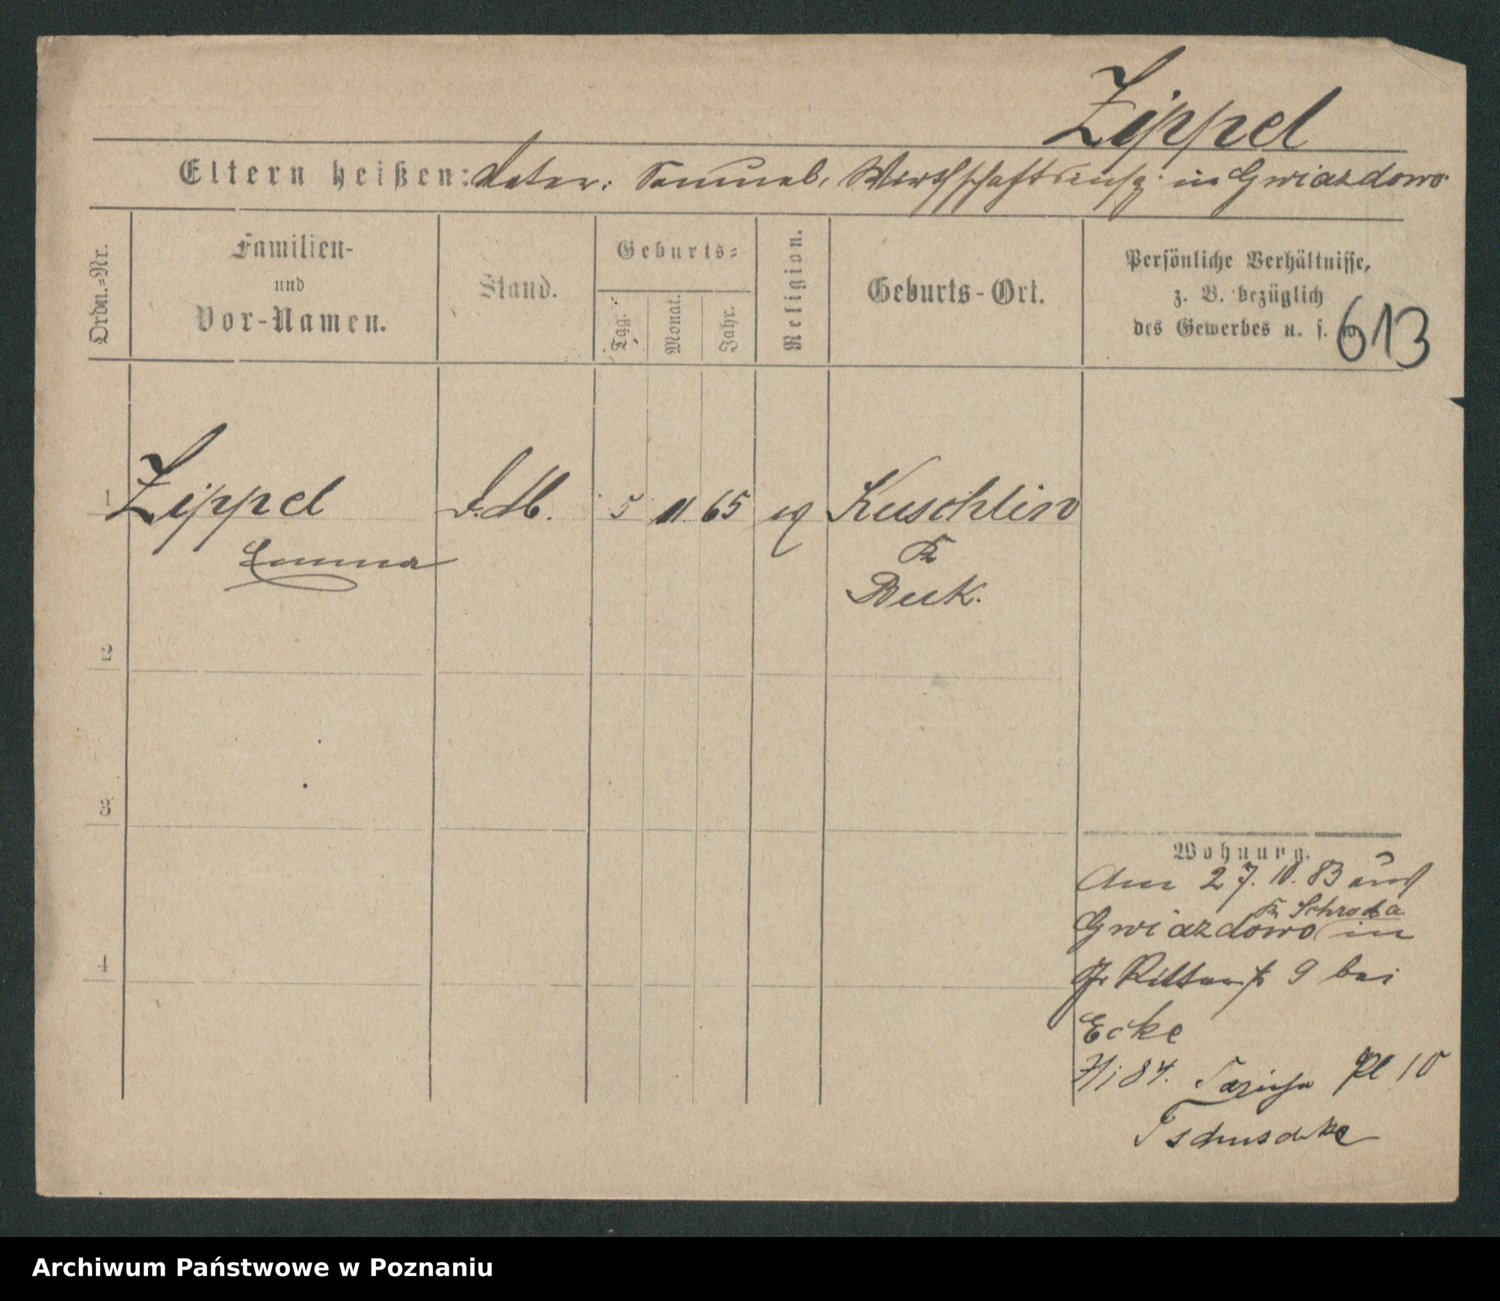 Zippel
Eltern heißen: Vater: Samuel, Wirthschaftsinsp. in Gwiazdowo
Ordn.-Nr.
Familien-
und
Vor-Namen.
Stand.
Geburts-
Tag.
Monat.
Jahr.
Religion.
Geburts-Ort.
Persönliche Verhältnisse,
z. B. bezüglich
des Gewerbes u. s.
613
1 Zippel 5 11 65 ev Kuschlin
Emma
Kr
Buk.
2
3
4
Wohnung.
Am 27. 10. 83 aus
Kr Schroda
Gwiazdowo in
Gr Ritterstr 9 bei
Ecke
84. Pl 10
Tschuschke
Archiwum Państwowe w Poznaniu